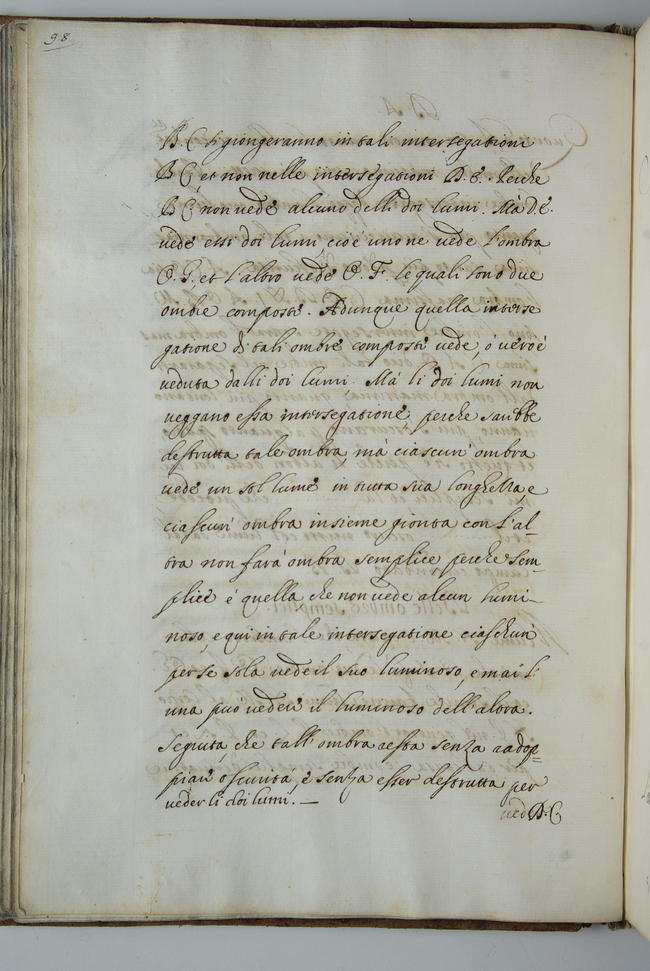 98
B. C. si giongeranno in tali intersegationi
B C, et non nelle intersegationi D. E. Perche
B C non vede alcuno delli doi lumi. Mà D. E.
vede essi doi lumi, cioè uno ne vede l'ombra
O. G. et l'altro vede O. F. le quali sono due
ombre composte. Adunque quella interse
gatione di tali ombre composte vede, ò vero è
veduta dalli doi lumi. Mà li doi lumi non
veggano essa intersegatione, perche sarebbe
destrutta tale ombra, mà ciascun' ombra
vede un sol lume in tutta sua longhezza, e
ciascun' ombra insieme gionta con l'al-
tra non farà ombra semplice, perche sem-
plice è quella che non vede alcun lumi-
noso, e qui in tale intersegatione ciaschun'
per se sola vede il suo luminoso, e mai l'
una può vedere il luminoso dell'altra.
Seguita, che tall'ombra resta senza radop=
piare oscurità, e senza esser destrutta per
veder li doi lumi. —
ved D. C.